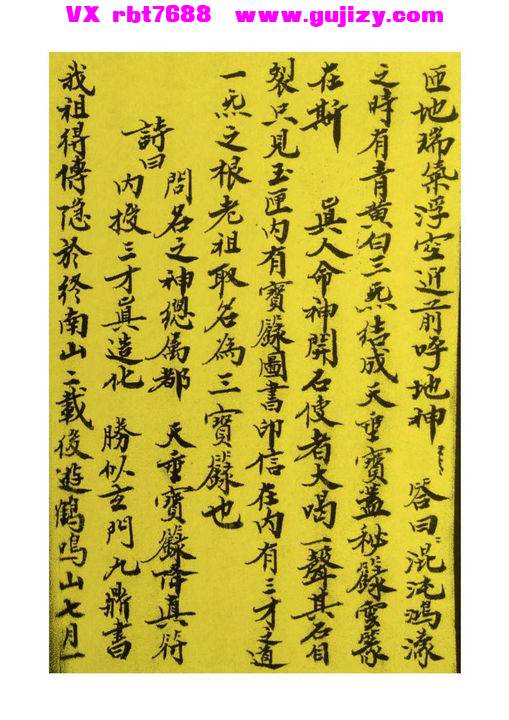 VX rbt7688 www.gujizy.com
匝地瑞氣浮空近前呼地神 答曰混沌鴻濛
之時有青黃白三炁結成天垂寶蓋秘籙雲篆
在斯 眞人命神開石使者大喝一聲其石自
裂只見玉匣内有寶籙圖書印信在内有三才之道
一炁之根老祖取名為三寶籙也
詩曰
問名之神總属都 天垂寶籙降真符
内投三才眞造化 勝似玄門九鼎書
我祖得傳隐於终南山二載後遊鶴鳴山七月一